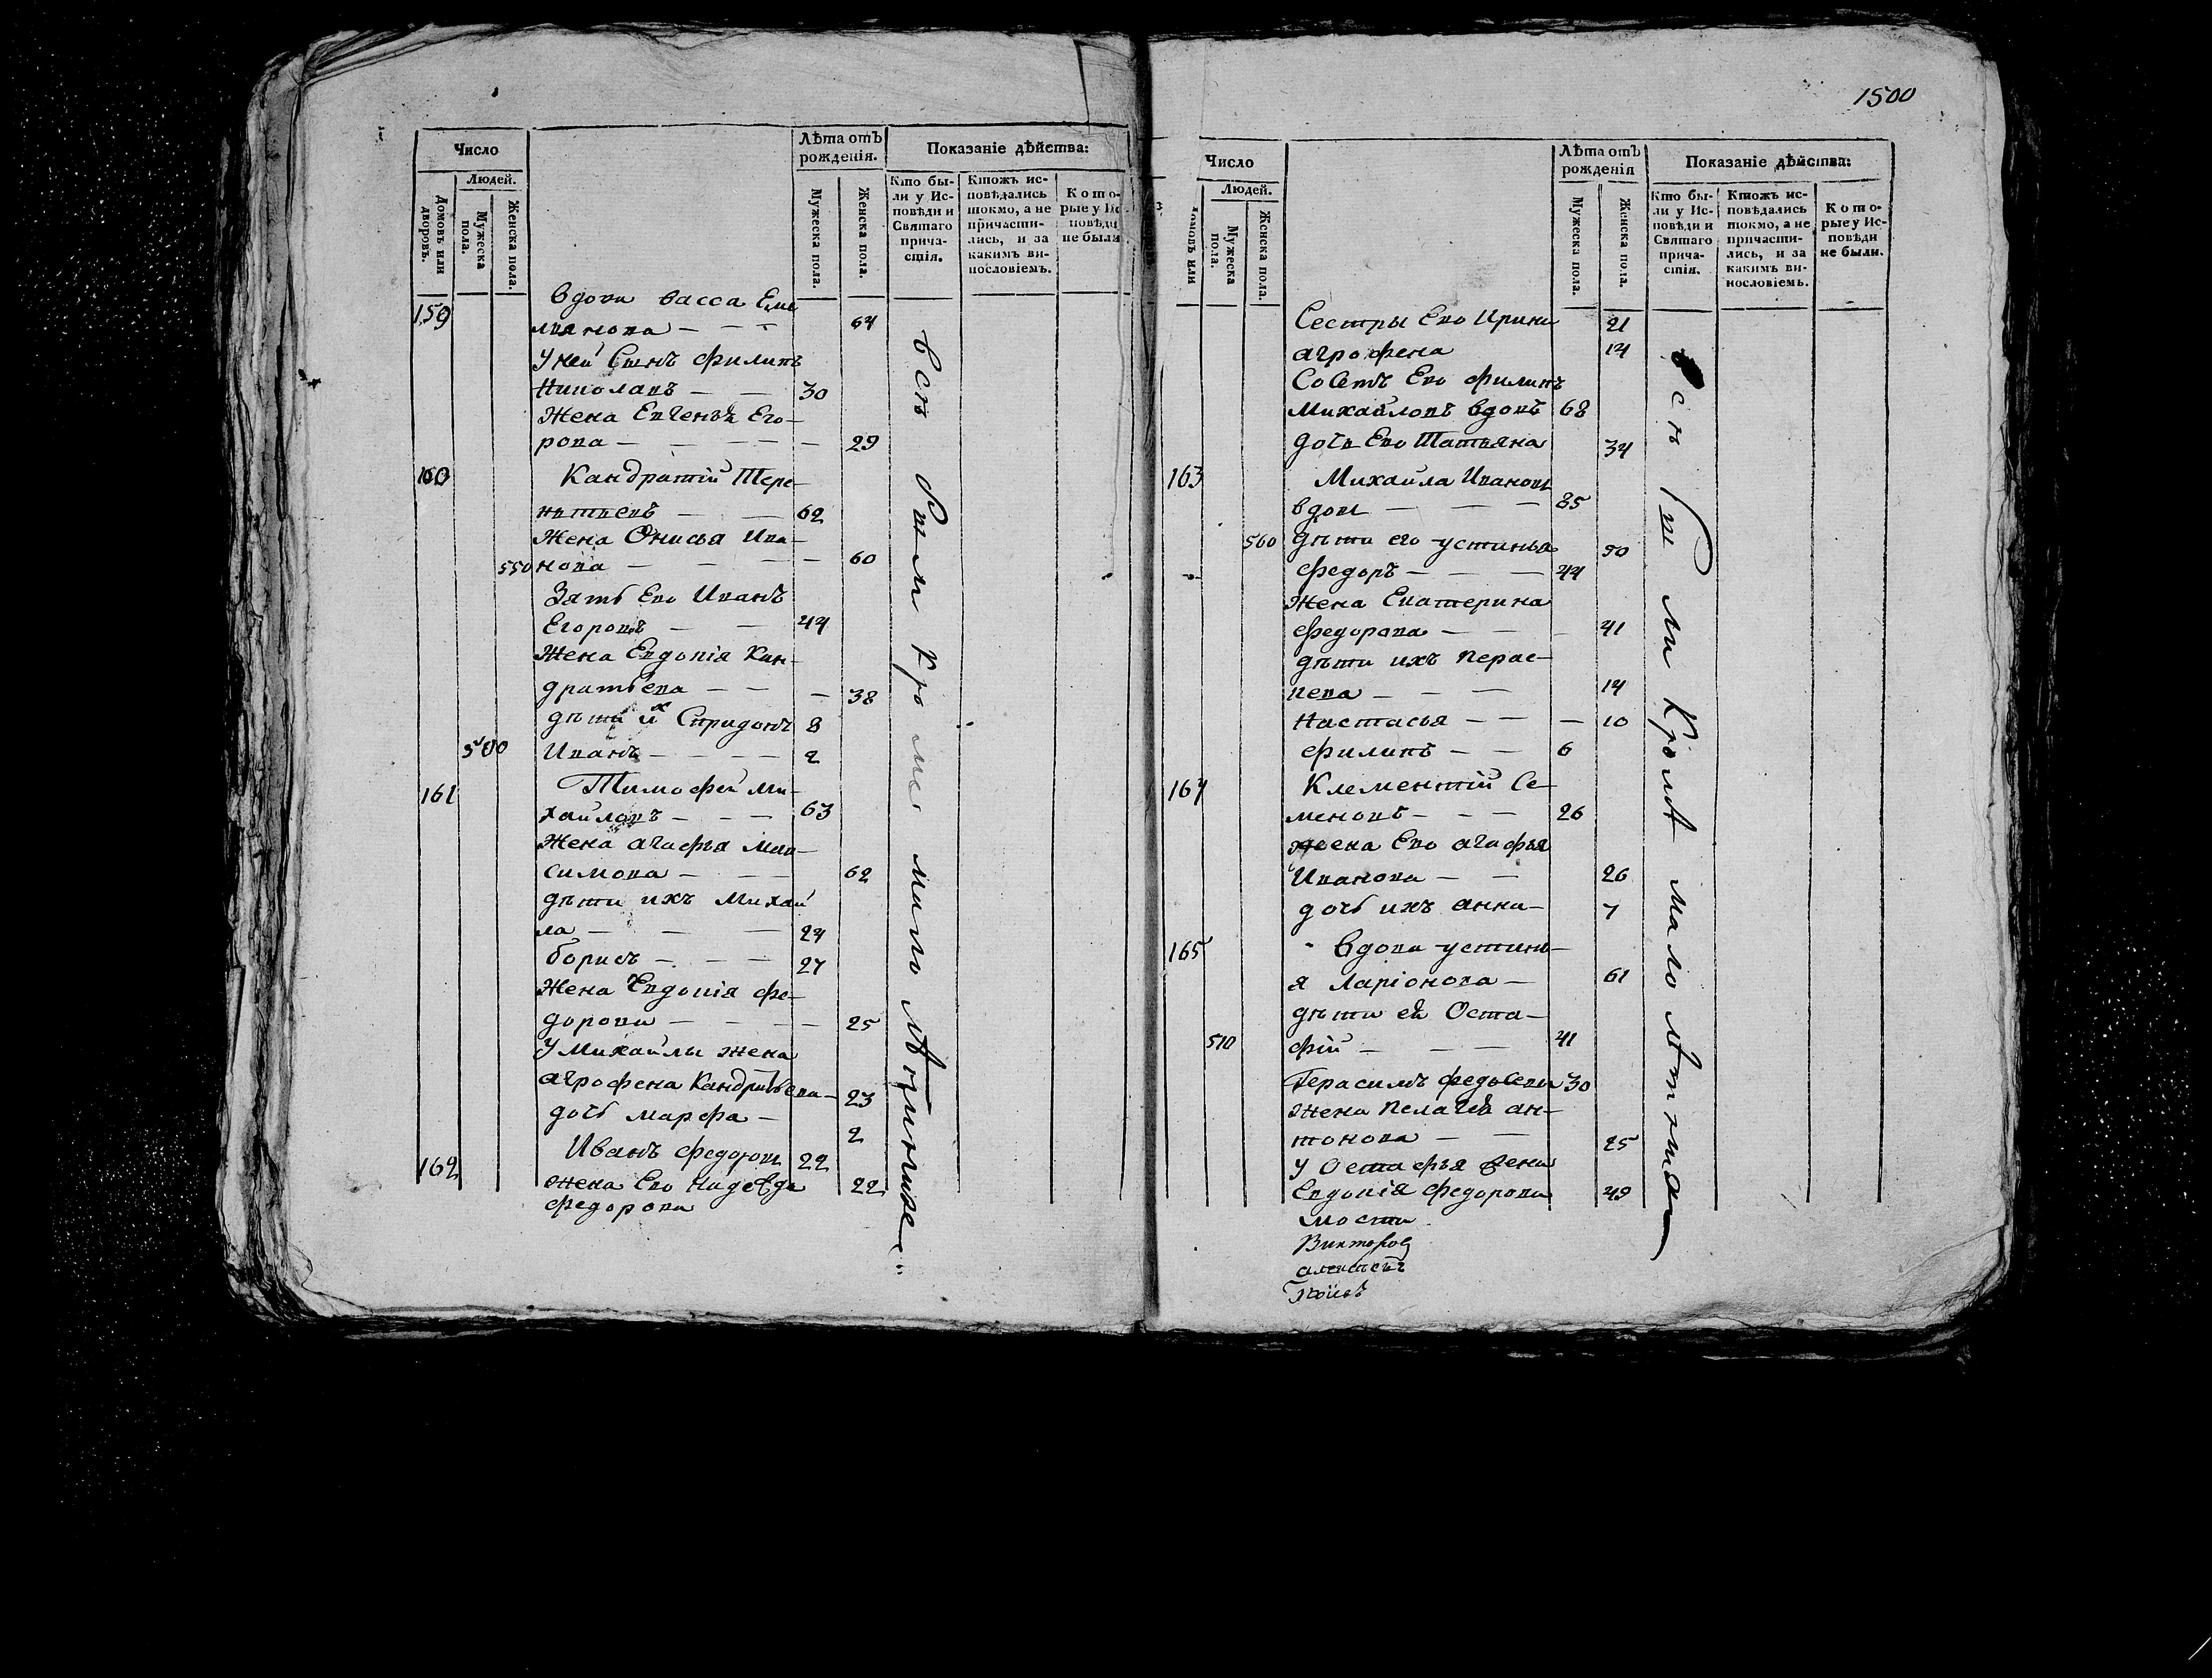 1500
Число
Лѣта отъ
рожденія.
Показаніе дѣйства:
Людей.
Домовъ или
дворовъ.
Мужеска
пола.
Женска пола.
Мужеска пола.
Женска пола.
Кто бы-
ли у Ис-
повѣди и
Святаго
прича-
стія.
Ктожъ ис-
повѣдались
токмо, а не
причасти-
лись, и за
какимъ ви-
нословіемъ.
Кото-
рые у Ис-
повѣди
не были
159
вдова васса Еме
льянова — — — 64
У неи Сынъ филипъ
Николаевъ — — 30
Жена Евгенья Его-
рова — — — — 29
160 Кандратій Тере-
нтьевъ — — 62
Жена Онисья Ива-
550 нова — — — — 60
Зять Ево Иванъ
Егоровъ — — 44
Жена Евдокія Кан-
дратьева — — — 38
дѣти ихъ Спридонъ 8
500 Иванъ — — — — 2
161 Тимофей Ми-
хайловъ — — — 63
Жена агафья Мак-
симова — — — 62
дѣти ихъ Михаи
ла — — — 24
борисъ — — — 27
Жена Евдокія фе-
дорова — — — — 25
У Михайлы жена
агрофена Кандратьева — 23
дочь марфа — 2
162 Иванъ федоровъ 22
жена Ево надевда 22
федорова
всѣ были кроме малолѣтныхъ
Число
Лѣта отъ
рожденія
Показаніе дѣйства:
Людей.
Домовъ или
Мужеска
пола.
Женска пола.
Мужеска пола.
Женска пола.
Кто бы-
ли у Ис-
повѣди и
Святаго
прича-
стія.
Ктожъ ис-
повѣдались
токмо, а не
причасти-
лись, и за
какимъ ви-
нословіемъ.
Кото-
рые у Ис-
повѣди
не были.
Сестры Ево Ирина 21
агрофена 14
Ево филипъ
Михайловъ вдовъ 68
дочь Ево Татьяна 34
163 Михайла Ивановъ
вдовъ — — — 85
560 дѣти его устинья 50
федоръ — — — 44
Жена Екатерина
федорова — — — 41
дѣти ихъ Парас-
кева — — — 14
Настасья — — — 10
филипъ — — 6
164 Клементій Се-
меновъ — — — 26
жена Ево агафья
Иванова — — 26
дочь ихъ анна — 7
165 вдова устинь-
я Ларіонова — 61
дѣти ей Оста-
510 фій — — — 41
Герасимъ федосеевы 30
жена Пелагея ан-
тонова — — 25
У Остафья жена
Евдокія федорова 49
всѣ были Кромѣ малолѣтныхъ